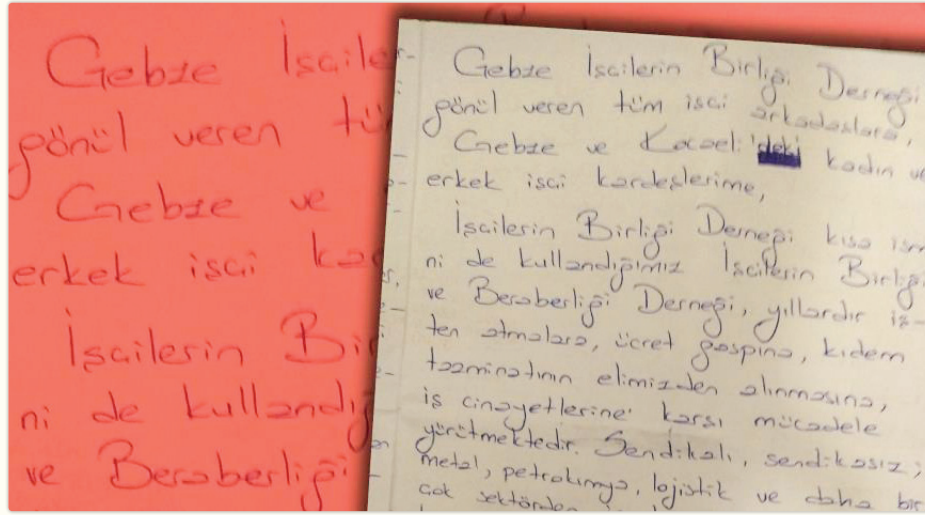 Gebze İşçile
gönül veren tü
Gebze ve
erkek işçi ka
İşçilerin Bir
ni de kulland
ve Beraberliği
Gebze İşçilerin Birliği Derneği
gönül veren tüm işçi arkadaşlara,
Gebze ve Kocaeli'deki kadın ve
erkek işçi kardeşlerime,
İşçilerin Birliği Derneği kısa ism
ni de kullandığımız İşçilerin Birliği
ve Beraberliği Derneği, yıllardır iş-
ten atmalara, ücret gaspına, kıdem
tazminatının elimizden alınmasına,
iş cinayetlerine karşı mücadele
yürütmektedir. Sendikalı, sendikasız;
metal, petrokimya, lojistik ve daha bir
çok sektörden